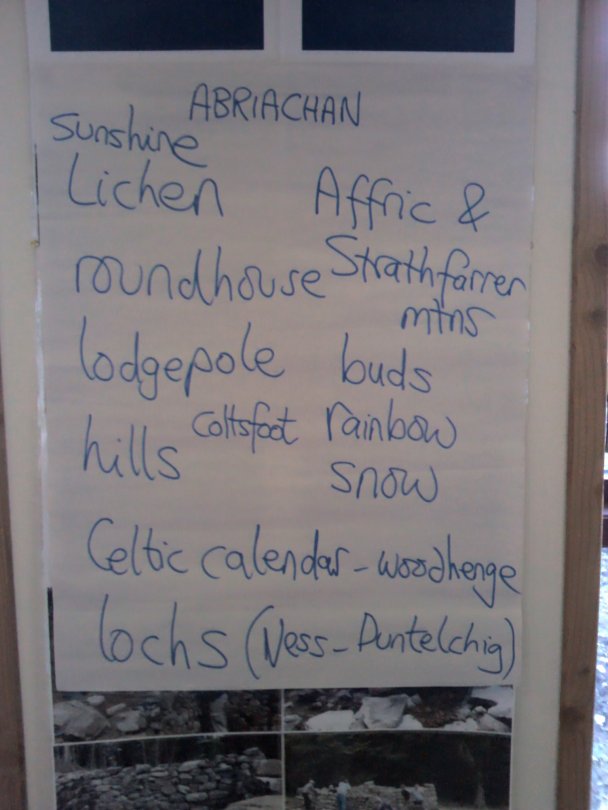 ABRIACHAN
sunshine
Lichen
Affric &
Strathfarrer
mtns
roundhouse
lodgepole
buds
hills
coltsfoot
rainbow
snow
Celtic calendar - woodhenge
lochs (Ness - Duntelchig)